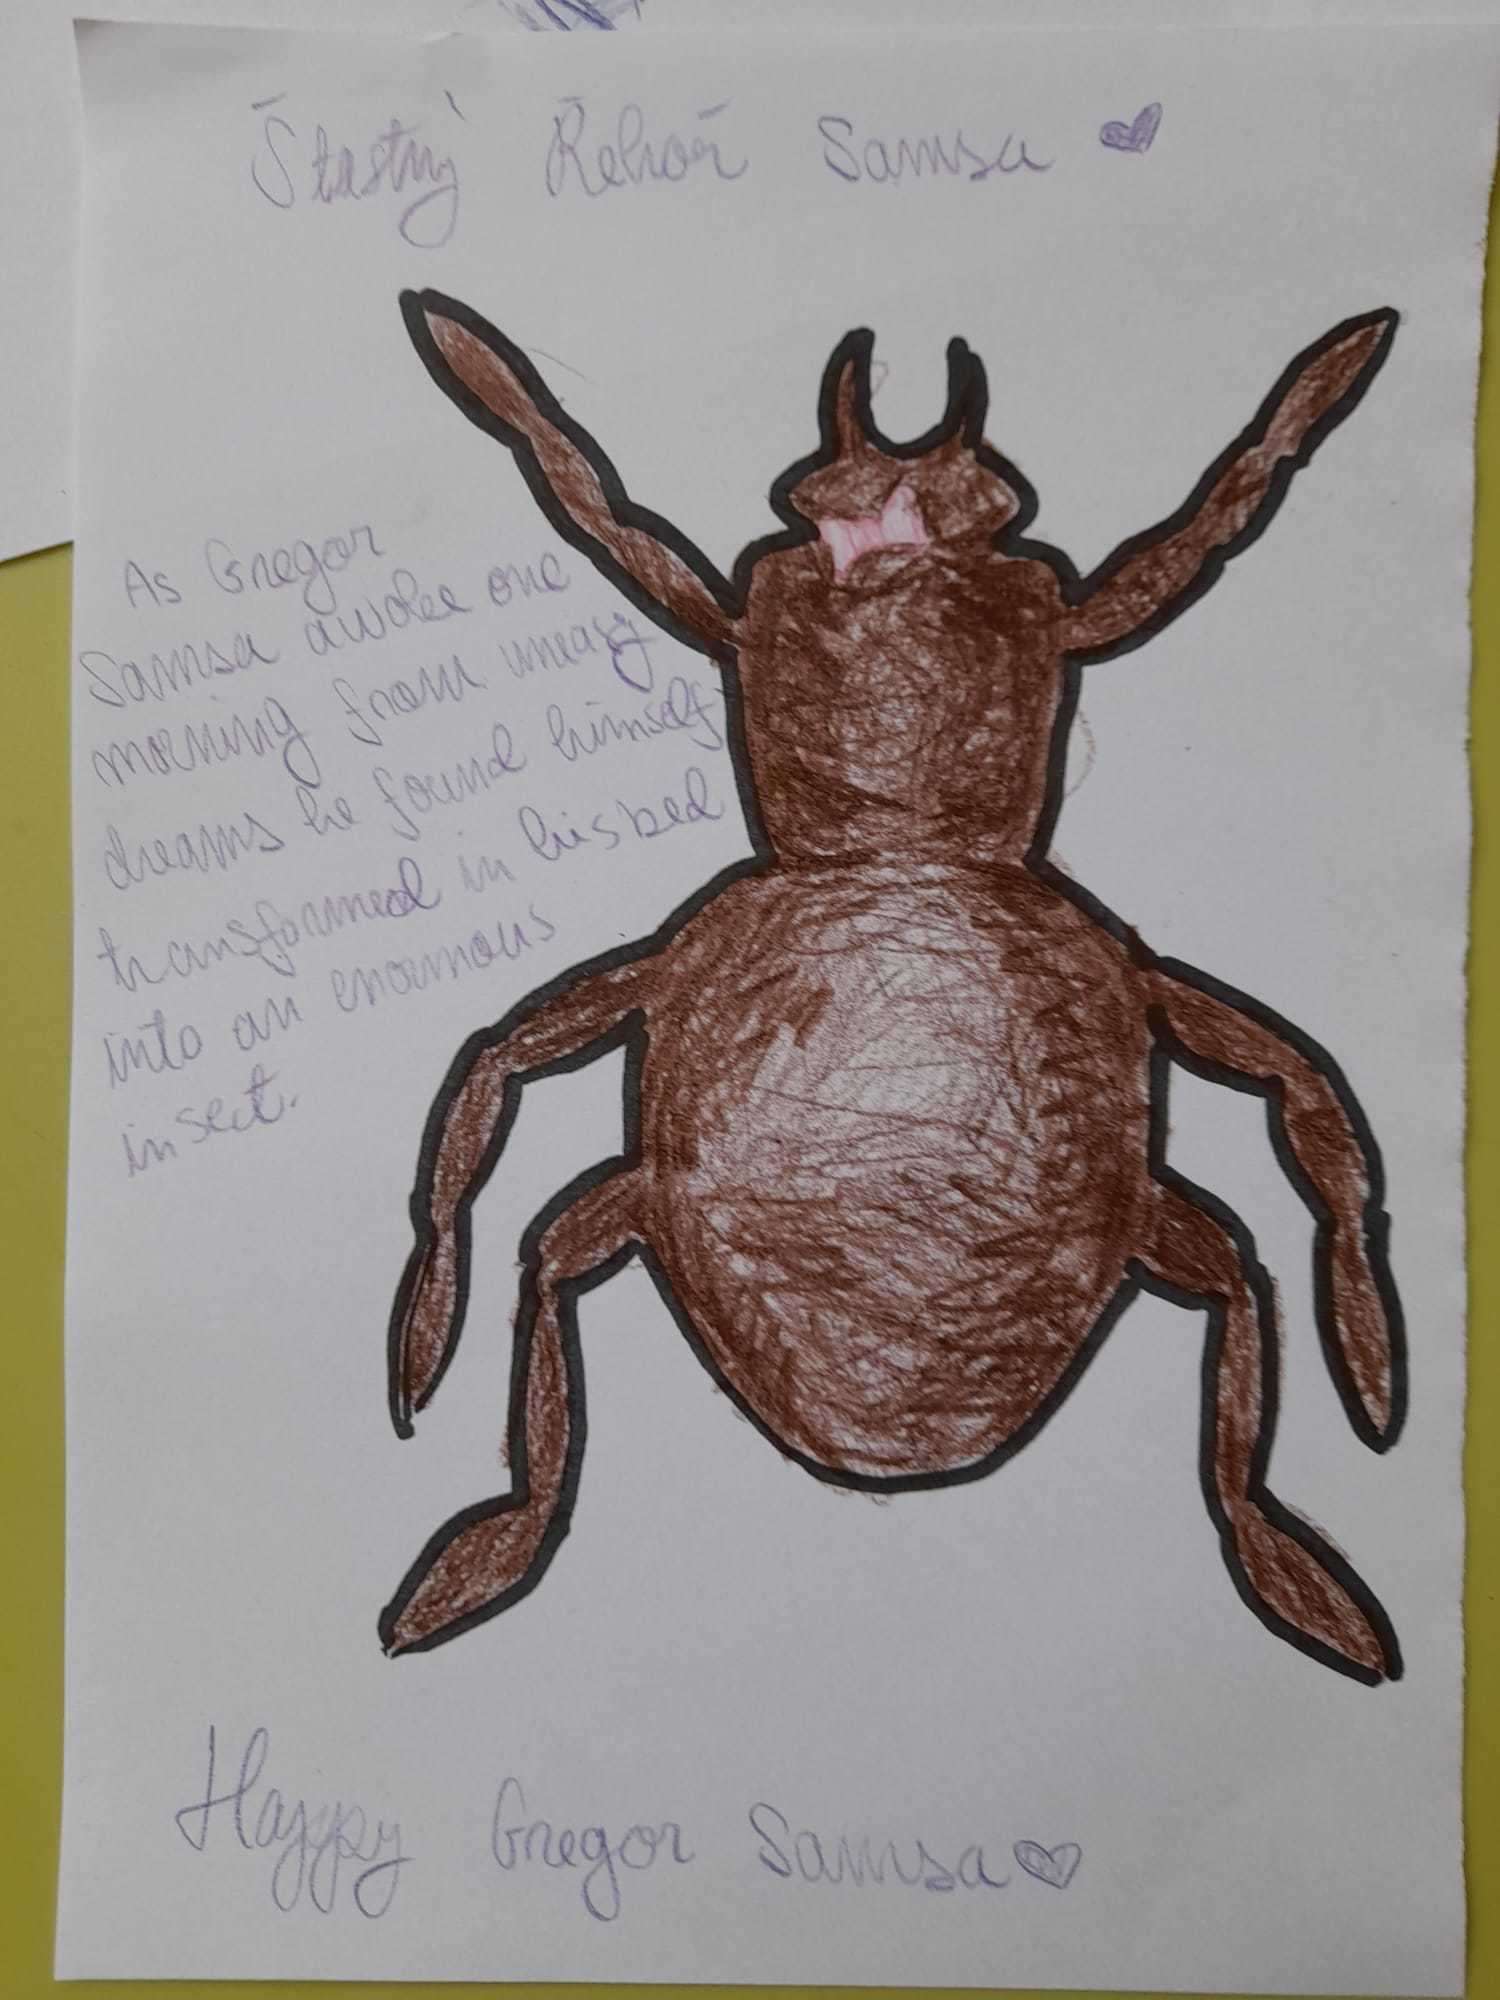 Štastný Řehoř Samsa
As Gregor
Samsa awoke one
morning from uneasy
dreams he found himself
transformed in his bed
into an enormous
insect.
Happy Gregor Samsa